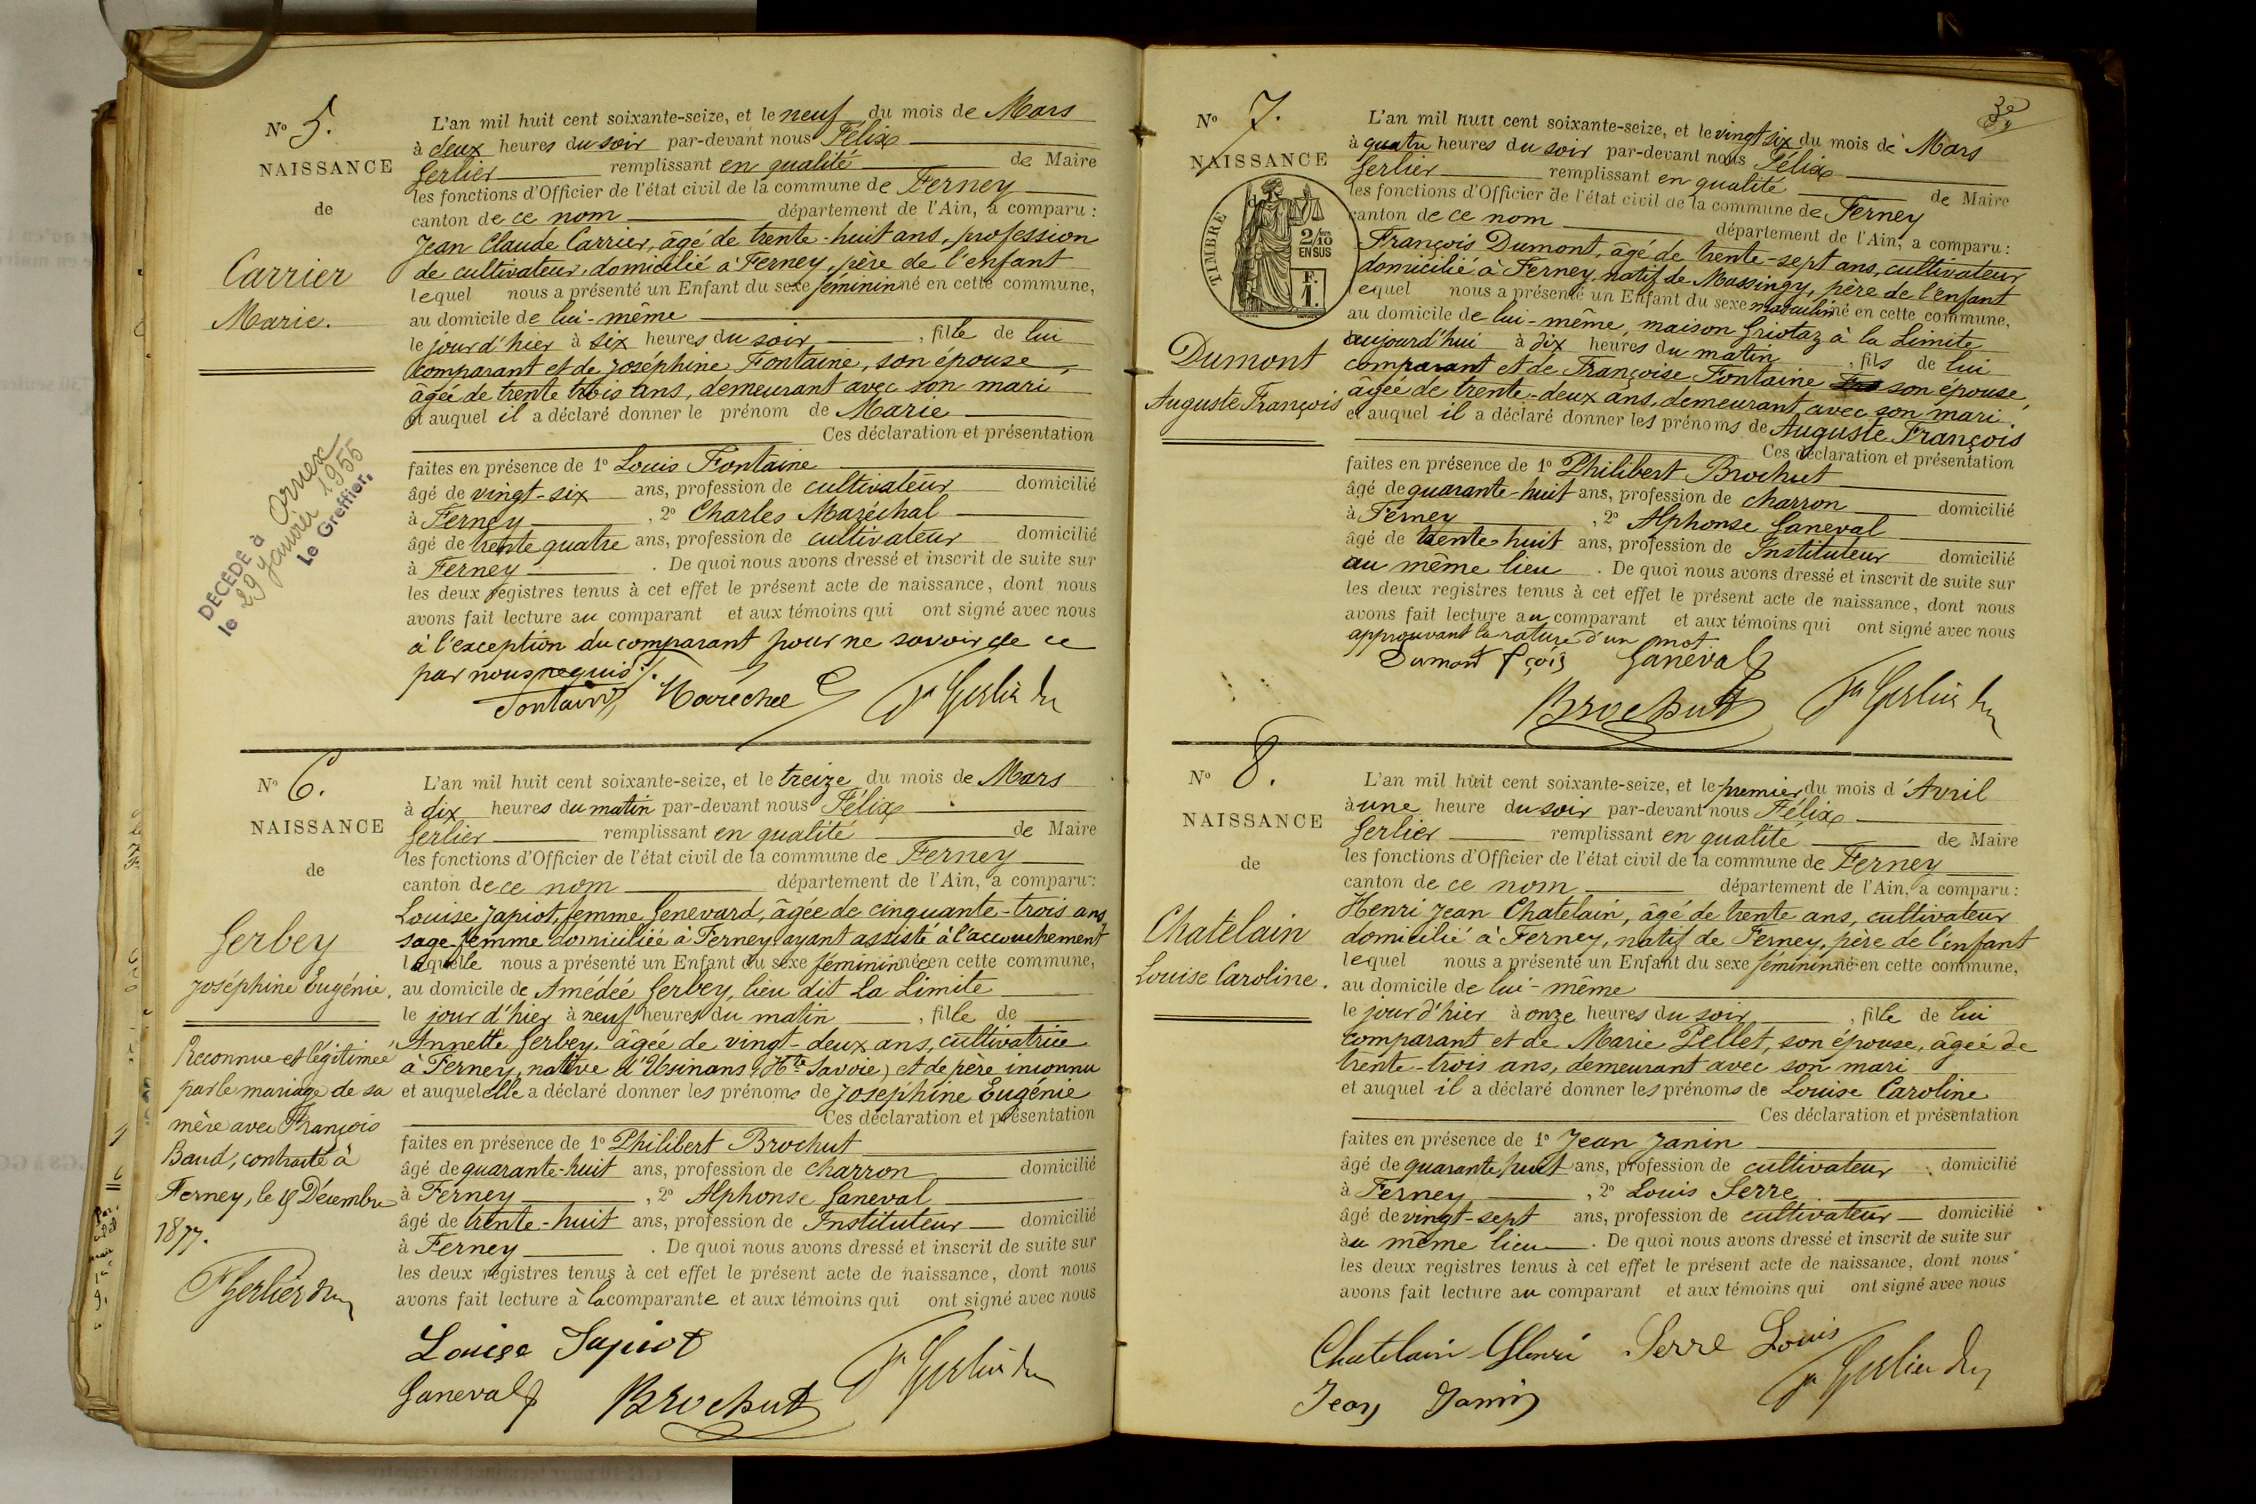 No 5.
NAISSANCE
de
Carrier
Marie.
DÉCÉDÉ à Ornex
le 29 Janvier 1955
Le Greffier,
L'an mil huit cent soixante-seize, et le neuf du mois de Mars
à deux heures du soir par-devant nous Félix
Gerlier remplissant en qualité de Maire
les fonctions d'Officier de l'état civil de la commune de Ferney
canton de ce nom département de l'Ain, a comparu :
Jean Claude Carrier, âgé de trente-huit ans, profession
de cultivateur, domicilié à Ferney, père de l'enfant
lequel nous a présenté un Enfant du sexe féminin né en cette commune,
au domicile de lui-même
le jour d'hier à six heures du soir , fille de lui
comparant et de Joséphine Fontaine, son épouse,
âgée de trente trois ans, demeurant avec son mari
et auquel il a déclaré donner le prénom de Marie
Ces déclaration et présentation
faites en présence de 1o Louis Fontaine
âgé de vingt-six ans, profession de cultivateur domicilié
à Ferney , 2o Charles Maréchal
âgé de trente quatre ans, profession de cultivateur domicilié
à Ferney . De quoi nous avons dressé et inscrit de suite sur
les deux registres tenus à cet effet le présent acte de naissance, dont nous
avons fait lecture au comparant et aux témoins qui ont signé avec nous
à l'exception du comparant pour ne savoir de ce
par nous requis.
Fontaine Maréchal C Fx Gerlier
No 6.
NAISSANCE
de
Gerbey
Joséphine Eugénie.
Reconnue et légitimée
par le mariage de sa
mère avec François
Baud, contracté à
Ferney, le Décembre
1877.
F Gerlier
L'an mil huit cent soixante-seize, et le treize du mois de Mars
à dix heures du matin par-devant nous Félix
Gerlier remplissant en qualité de Maire
les fonctions d'Officier de l'état civil de la commune de Ferney
canton de ce nom département de l'Ain, a comparu :
Louise Japiot, femme Genevard, âgée de cinquante-trois ans,
sage femme domiciliée à Ferney, ayant assisté à l'accouchement
laquelle nous a présenté un Enfant du sexe féminin née en cette commune,
au domicile de Amédée Gerbey, lieu dit La Limite
le jour d'hier à neuf heures du matin , fille de
Annette Gerbey, âgée de vingt-deux ans, cultivatrice
à Ferney, native d'Usinans (Hte Savoie) et de père inconnu
et auquel elle a déclaré donner les prénoms de Joséphine Eugénie
Ces déclaration et présentation
faites en présence de 1o Philibert Brochut
âgé de quarante-huit ans, profession de charron domicilié
à Ferney , 2o Alphonse Ganeval
âgé de trente-huit ans, profession de Instituteur domicilié
à Ferney . De quoi nous avons dressé et inscrit de suite sur
les deux registres tenus à cet effet le présent acte de naissance, dont nous
avons fait lecture à la comparante et aux témoins qui ont signé avec nous
Louise Japiot
Ganeval Brochut Fx Gerlier
No 7.
NAISSANCE
TIMBRE
2/10
EN SUS
F.
1.
Dumont
Auguste François
L'an mil huit cent soixante-seize, et le vingt six du mois de Mars
à quatre heures du soir par-devant nous Félix
Gerlier remplissant en qualité de Maire
les fonctions d'Officier de l'état civil de la commune de Ferney
canton de ce nom département de l'Ain, a comparu :
François Dumont, âgé de trente-sept ans, cultivateur
domicilié à Ferney, natif de Massingy, père de l'enfant
lequel nous a présenté un Enfant du sexe masculin né en cette commune,
au domicile de lui-même, maison Griotaz à la Limite
aujourd'hui à dix heures du matin , fils de lui
comparant et de Françoise Fontaine son épouse,
âgée de trente-deux ans, demeurant avec son mari.
et auquel il a déclaré donner les prénoms de Auguste François
Ces déclaration et présentation
faites en présence de 1o Philibert Brochut
âgé de quarante-huit ans, profession de charron domicilié
à Ferney , 2o Alphonse Ganeval
âgé de trente huit ans, profession de Instituteur domicilié
au même lieu . De quoi nous avons dressé et inscrit de suite sur
les deux registres tenus à cet effet le présent acte de naissance, dont nous
avons fait lecture au comparant et aux témoins qui ont signé avec nous
approuvant la rature d'un mot.
Dumont fçois Ganeval
Brochut Fx Gerlier
No 8.
NAISSANCE
de
Chatelain
Louise Caroline.
L'an mil huit cent soixante-seize, et le premier du mois d'Avril
à une heure du soir par-devant nous Félix
Gerlier remplissant en qualité de Maire
les fonctions d'Officier de l'état civil de la commune de Ferney
canton de ce nom département de l'Ain, a comparu :
Henri Jean Chatelain, âgé de trente ans, cultivateur
domicilié à Ferney, natif de Ferney, père de l'enfant
lequel nous a présenté un Enfant du sexe féminin né en cette commune,
au domicile de lui-même
le jour d'hier à onze heures du soir , fille de lui
comparant et de Marie Pellet, son épouse, âgée de
trente-trois ans, demeurant avec son mari
et auquel il a déclaré donner les prénoms de Louise Caroline
Ces déclaration et présentation
faites en présence de 1o Jean Janin
âgé de quarante huit ans, profession de cultivateur domicilié
à Ferney , 2o Louis Serre
âgé de vingt-sept ans, profession de cultivateur domicilié
au même lieu . De quoi nous avons dressé et inscrit de suite sur
les deux registres tenus à cet effet le présent acte de naissance, dont nous
avons fait lecture au comparant et aux témoins qui ont signé avec nous
Chatelain Henri Serre Louis
Jean Janin Fx Gerlier